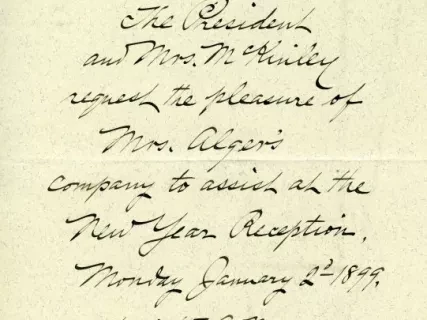 The President
and Mrs. McKinley
request the pleasure of
Mrs. Alger's
company to assist at the
New Year Reception,
Monday January 2d 1899.